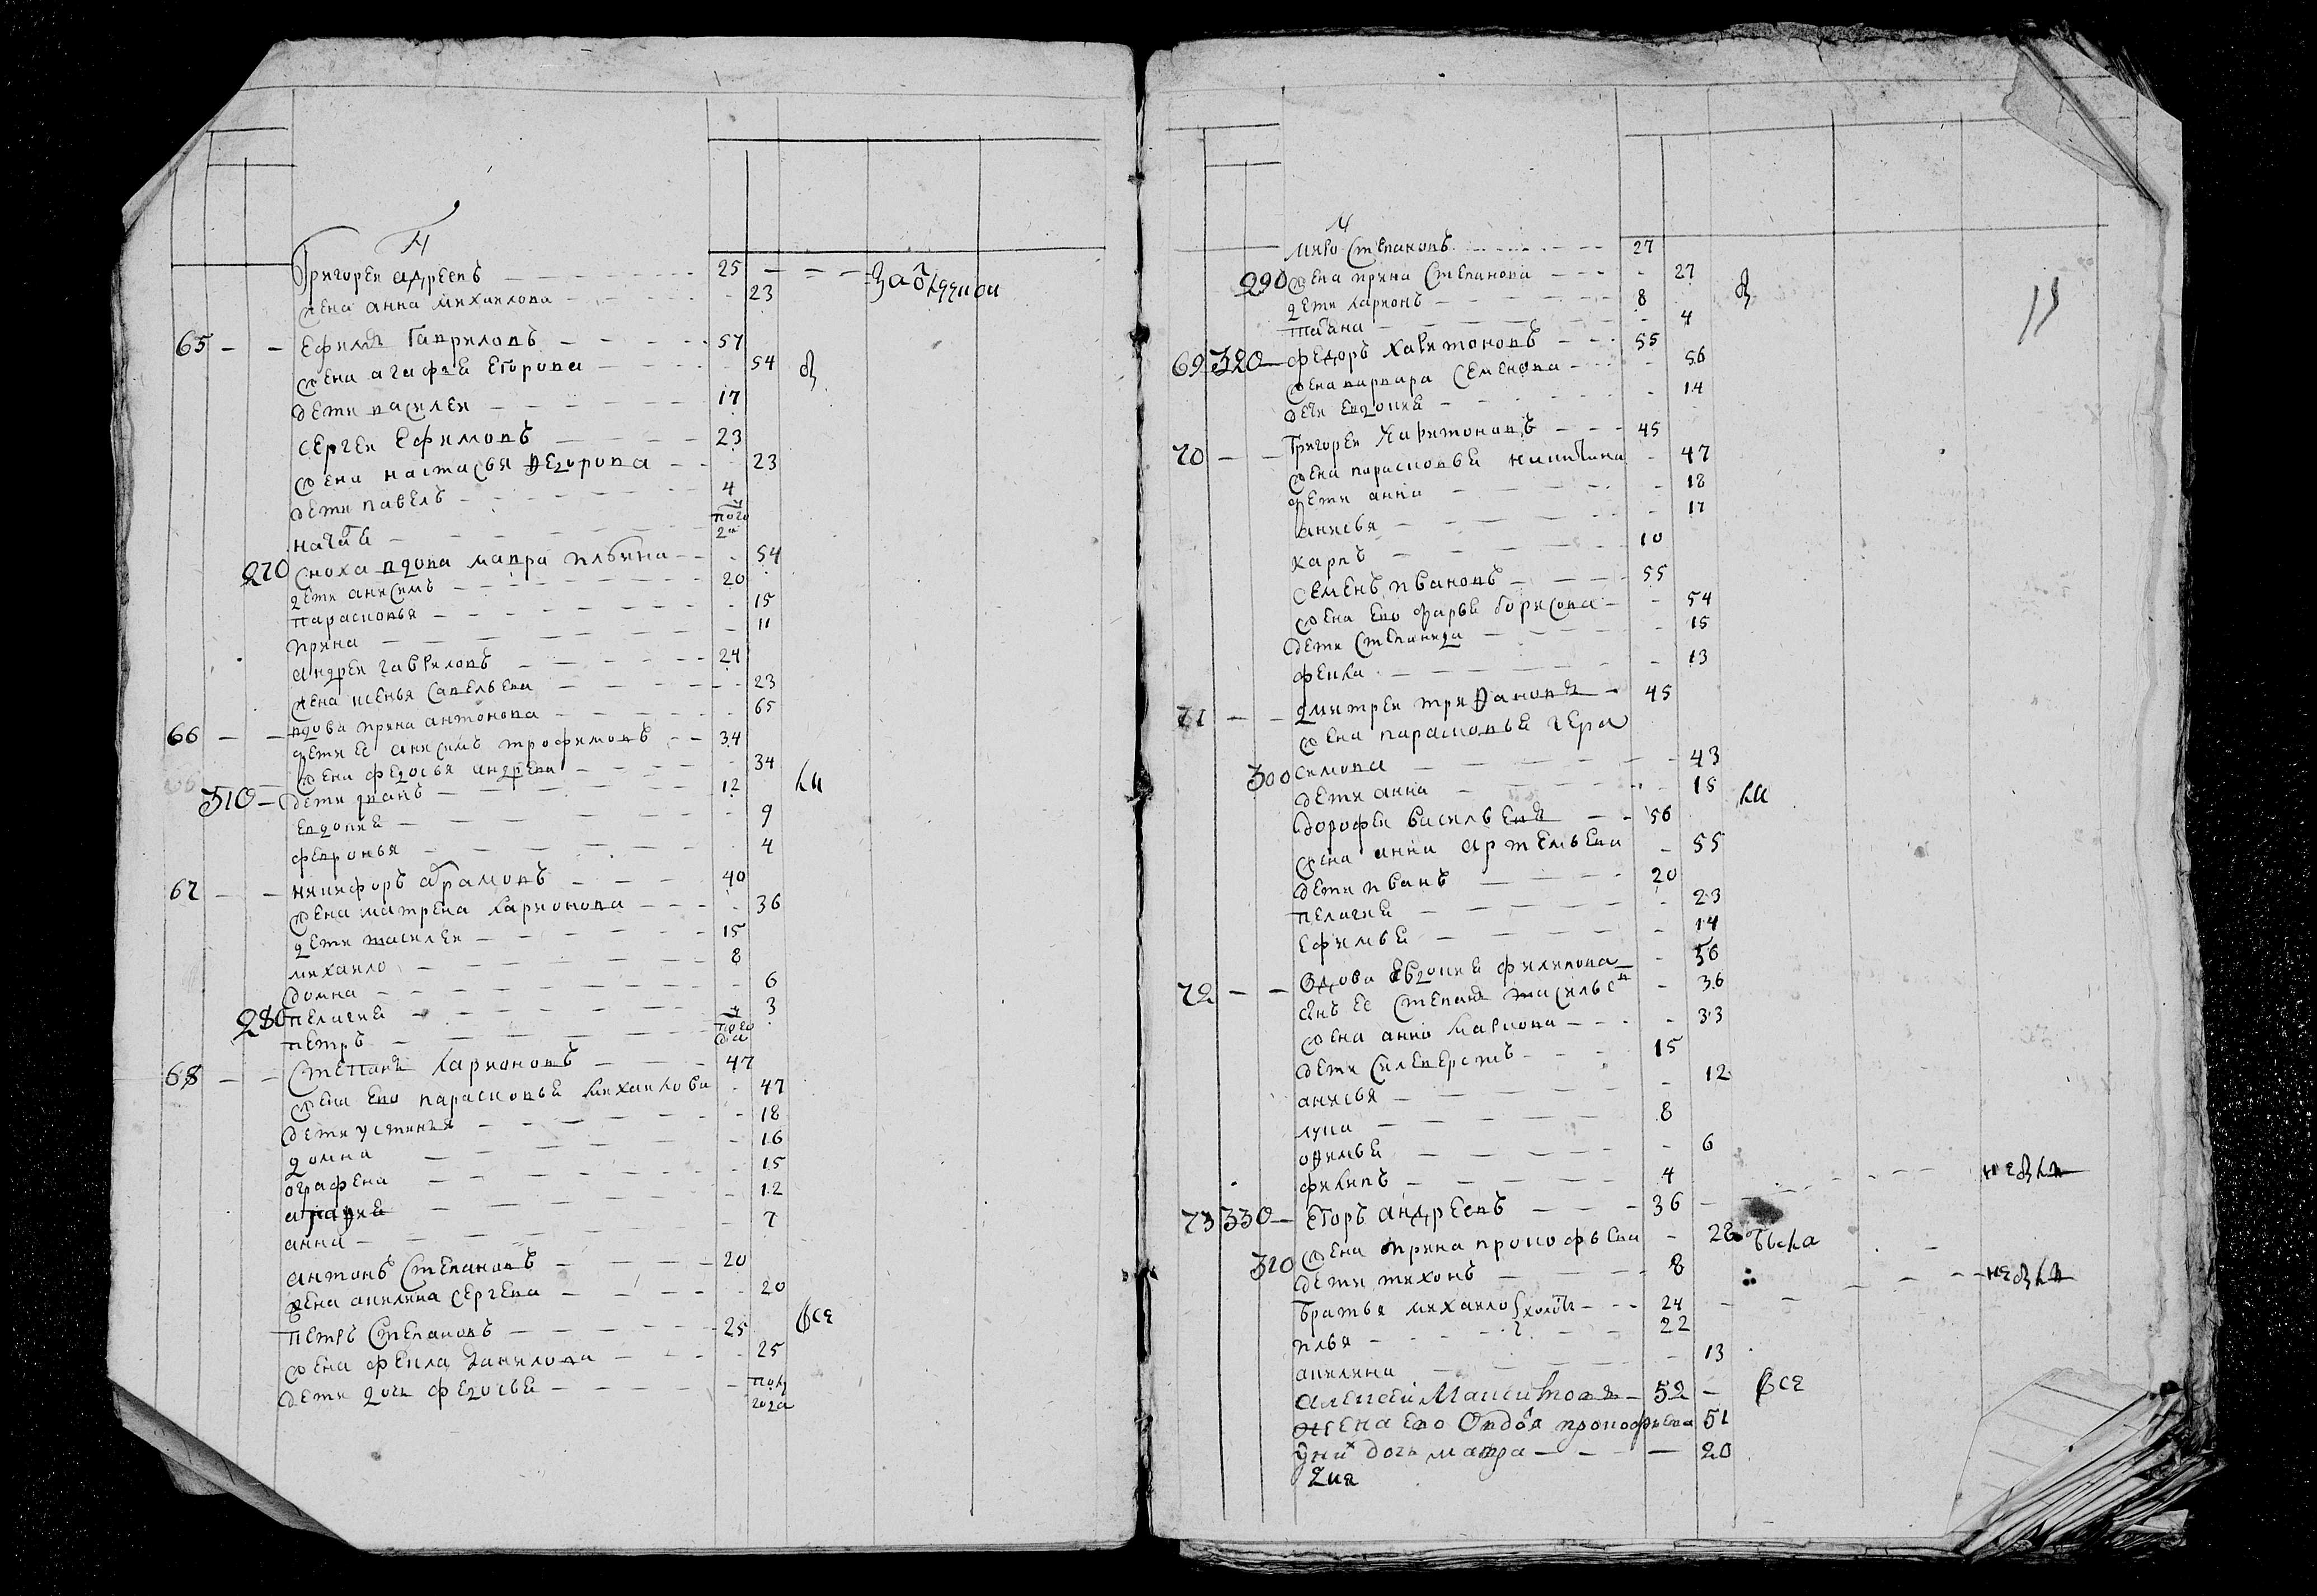 Григореи адреевъ 25
жена анна михаилова 23
65 Ефимъ Гавриловъ 57
жена агафея Егорова 54
дети василеи 17
сергеи Ефимовъ 23
жена настасья Федорова 23
дети павелъ 4
270 сноха вдова мавра ильина 54
дети анисимъ 20
парасковья 15
ирина 11
андреи гавриловъ 24
жена ксенья савельева 23
66 вдова ирина антонова 65
дети ее анисимъ трофимовъ 34
жена федосья андрева 34
310 дети иванъ 12
Евдокия 9
февронья 4
67 никифоръ абрамовъ 40
жена матрена Ларионова 36
дети василеи 15
михаило 8
домна 6
280 пелагия 3
петръ
68 Степанъ Ларионовъ 47
жена ево парасковья михаилова 47
дети устинья 18
домна 16
ографена 15
12
анна 7
антонъ Степановъ 20
жена акилина сергева 20
Петръ Степановъ 25 все
жена фекла данилова 25
дети дочь федосья пол
года
11
Степановъ 27
290 жена ирина Степанова 27
дети ларионъ 8
татяна 4
69 320 федоръ харитоновъ 55
жена варвара Семенова 56
дочи Евдокия 14
70 Григореи харитоновъ 45
жена парасковья никитина 47
дети анна 18
анисья 17
карпъ 10
Семенъ ивановъ 55
жена ево дарья борисова 54
дети Степанида 15
фекла 13
71 дмитреи трифановъ 45
жена парасковья гера
300 симова 43
дети анна 15
дорофеи василевъ 56
жена анна артемьева 55
дети иванъ 20
пелагия 23
Ефимья 14
72 Вдова Евдокия филипова 56
снъ ее степанъ василье 36
жена анна Ларионова 33
дети силеверстъ 15
анисья 12
лука 8
офимья 6
филипъ 4
73 330 Егоръ андреевъ 36
310 жена ирина прокофьева 28
дети тихонъ 8
братья михаило холосты 24
илья 22
акилина 13
алексеи Макситовъ 52 все
жена ево Овдотя прокофьева 51
у них дочь мавра 20